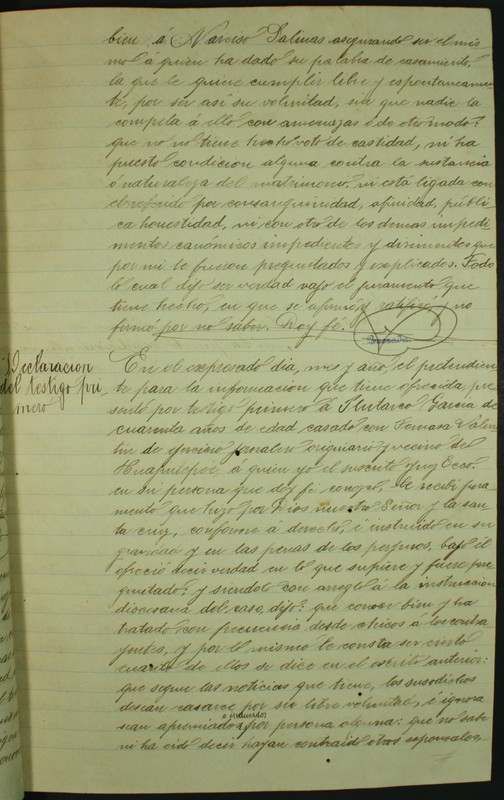 bien á Narciso Salinas asegurando ser el mis
mo á quien ha dado su palabra de casamiento,
la que le quiere cumplir libre y espontaneamen
te, por ser así su voluntad, sin que nadie la
compela á ello con amenazas ó de otro modo:
que no no tiene hecho voto de castidad, ni ha
puesto condicion alguna contra la sustancia
ó naturaleza del matrimonio, ni está ligada con
el referido por consanguinidad, afinidad, públi
ca honestidad, ni con otro de los demas impedi
mentos canónicos impedientes y dirimentes que
por mi le fueron preguntados y explicados. Todo
lo cual dijo ser verdad vajo el juramento que
tiene hecho, en que se afirmó y ratificó y no
firmó por no saber. Doy fé.
Declaracion
del testigo pri
mero
En el expresado dia, mes y año, el pretendien
te para la informacion que tiene ofrecida, pre
sentó por testigo primero á Plutarco Garcia de
cuarenta años de edad casado con Tomasa Valen
tin de ejercicio jornalero originario y vecino de
á quien yo el suscrito Juez Ecco.
en su persona que doy fé conozco, le recibí jura
mento que hizo por Dios nuestro Señor y la san
ta cruz, conforme á derecho, é instruido en su
gravedad y en las penas de los perjuros, bajo él
ofreció decir verdad en lo que supiere y fuere pre
guntado; y siendolo con arreglo á la instruccion
diocesana del caso, dijo: que conoce bien y ha
tratado con frecuencia desde chicos á los contra
yentes, y por lo mismo le consta ser cierto
cuanto de ellos se dice en el escrito anterior:
que segun las noticias que tiene, los susodichos
desean casarce por su libre voluntad, é ignora
sean apremiados ó inducidos por persona alguna: que no sabe
ni ha oido decir hayan contraido otros esponsales,